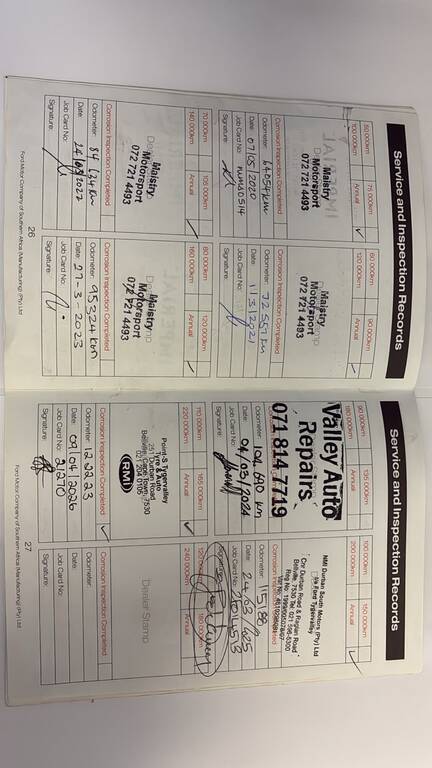 Service and Inspection Records
50 000km 75 000km
100 000km Annual ✓
Maistry
Motorsport
072 721 4493
Corrosion Inspection Completed
Odometer: 64054km
Date: 07/05/2020
Job Card No:
Signature:
60 000km 90 000km
120 000km Annual ✓
Maistry
Motorsport
072 721 4493
Corrosion Inspection Completed
Odometer: 72 557 km
Date: 11/3/2021
Job Card No:
Signature:
70 000km 105 000km
140 000km Annual ✓
Maistry
Motorsport
072 721 4493
Corrosion Inspection Completed
Odometer: 84 624km
Date: 24/03/2022
Job Card No:
Signature:
80 000km 120 000km
160 000km Annual ✓
Maistry
Motorsport
072 721 4493
Corrosion Inspection Completed
Odometer: 95324 km
Date: 27-3-2023
Job Card No:
Signature:
Ford Motor Company of Southern Africa (Manufacturing) (Pty) Ltd
26
Service and Inspection Records
90 000km 135 000km
180 000km Annual
Valley Auto
Repairs
071 814 7719
Odometer: 104 690 km
Date: 04/03/2024
Job Card No:
Signature:
100 000km 150 000km
200 000km Annual ✓
NMI Durban South Motors (Pty) Ltd
t/a Ford Tygervalley
Cnr Durban Road & Raglan Road
Bellville, 7530 Tel. 021 596-6300
Corrosion Inspection
Odometer: 115188
Date: 24/03/2025
Job Card No:
Signature:
110 000km 165 000km
220 000km Annual ✓
Point-S Tygervalley
Tyre & Auto
251 Durban Road
Bellville, Cape Town, 7530
RMI
Corrosion Inspection Completed ✓
Odometer: 122223
Date: 09/04/2026
Job Card No: 21270
Signature:
240 000km Annual
Dealer Stamp
Corrosion Inspection Completed
Odometer:
Date:
Job Card No:
Signature:
Ford Motor Company of Southern Africa (Manufacturing) (Pty) Ltd
27